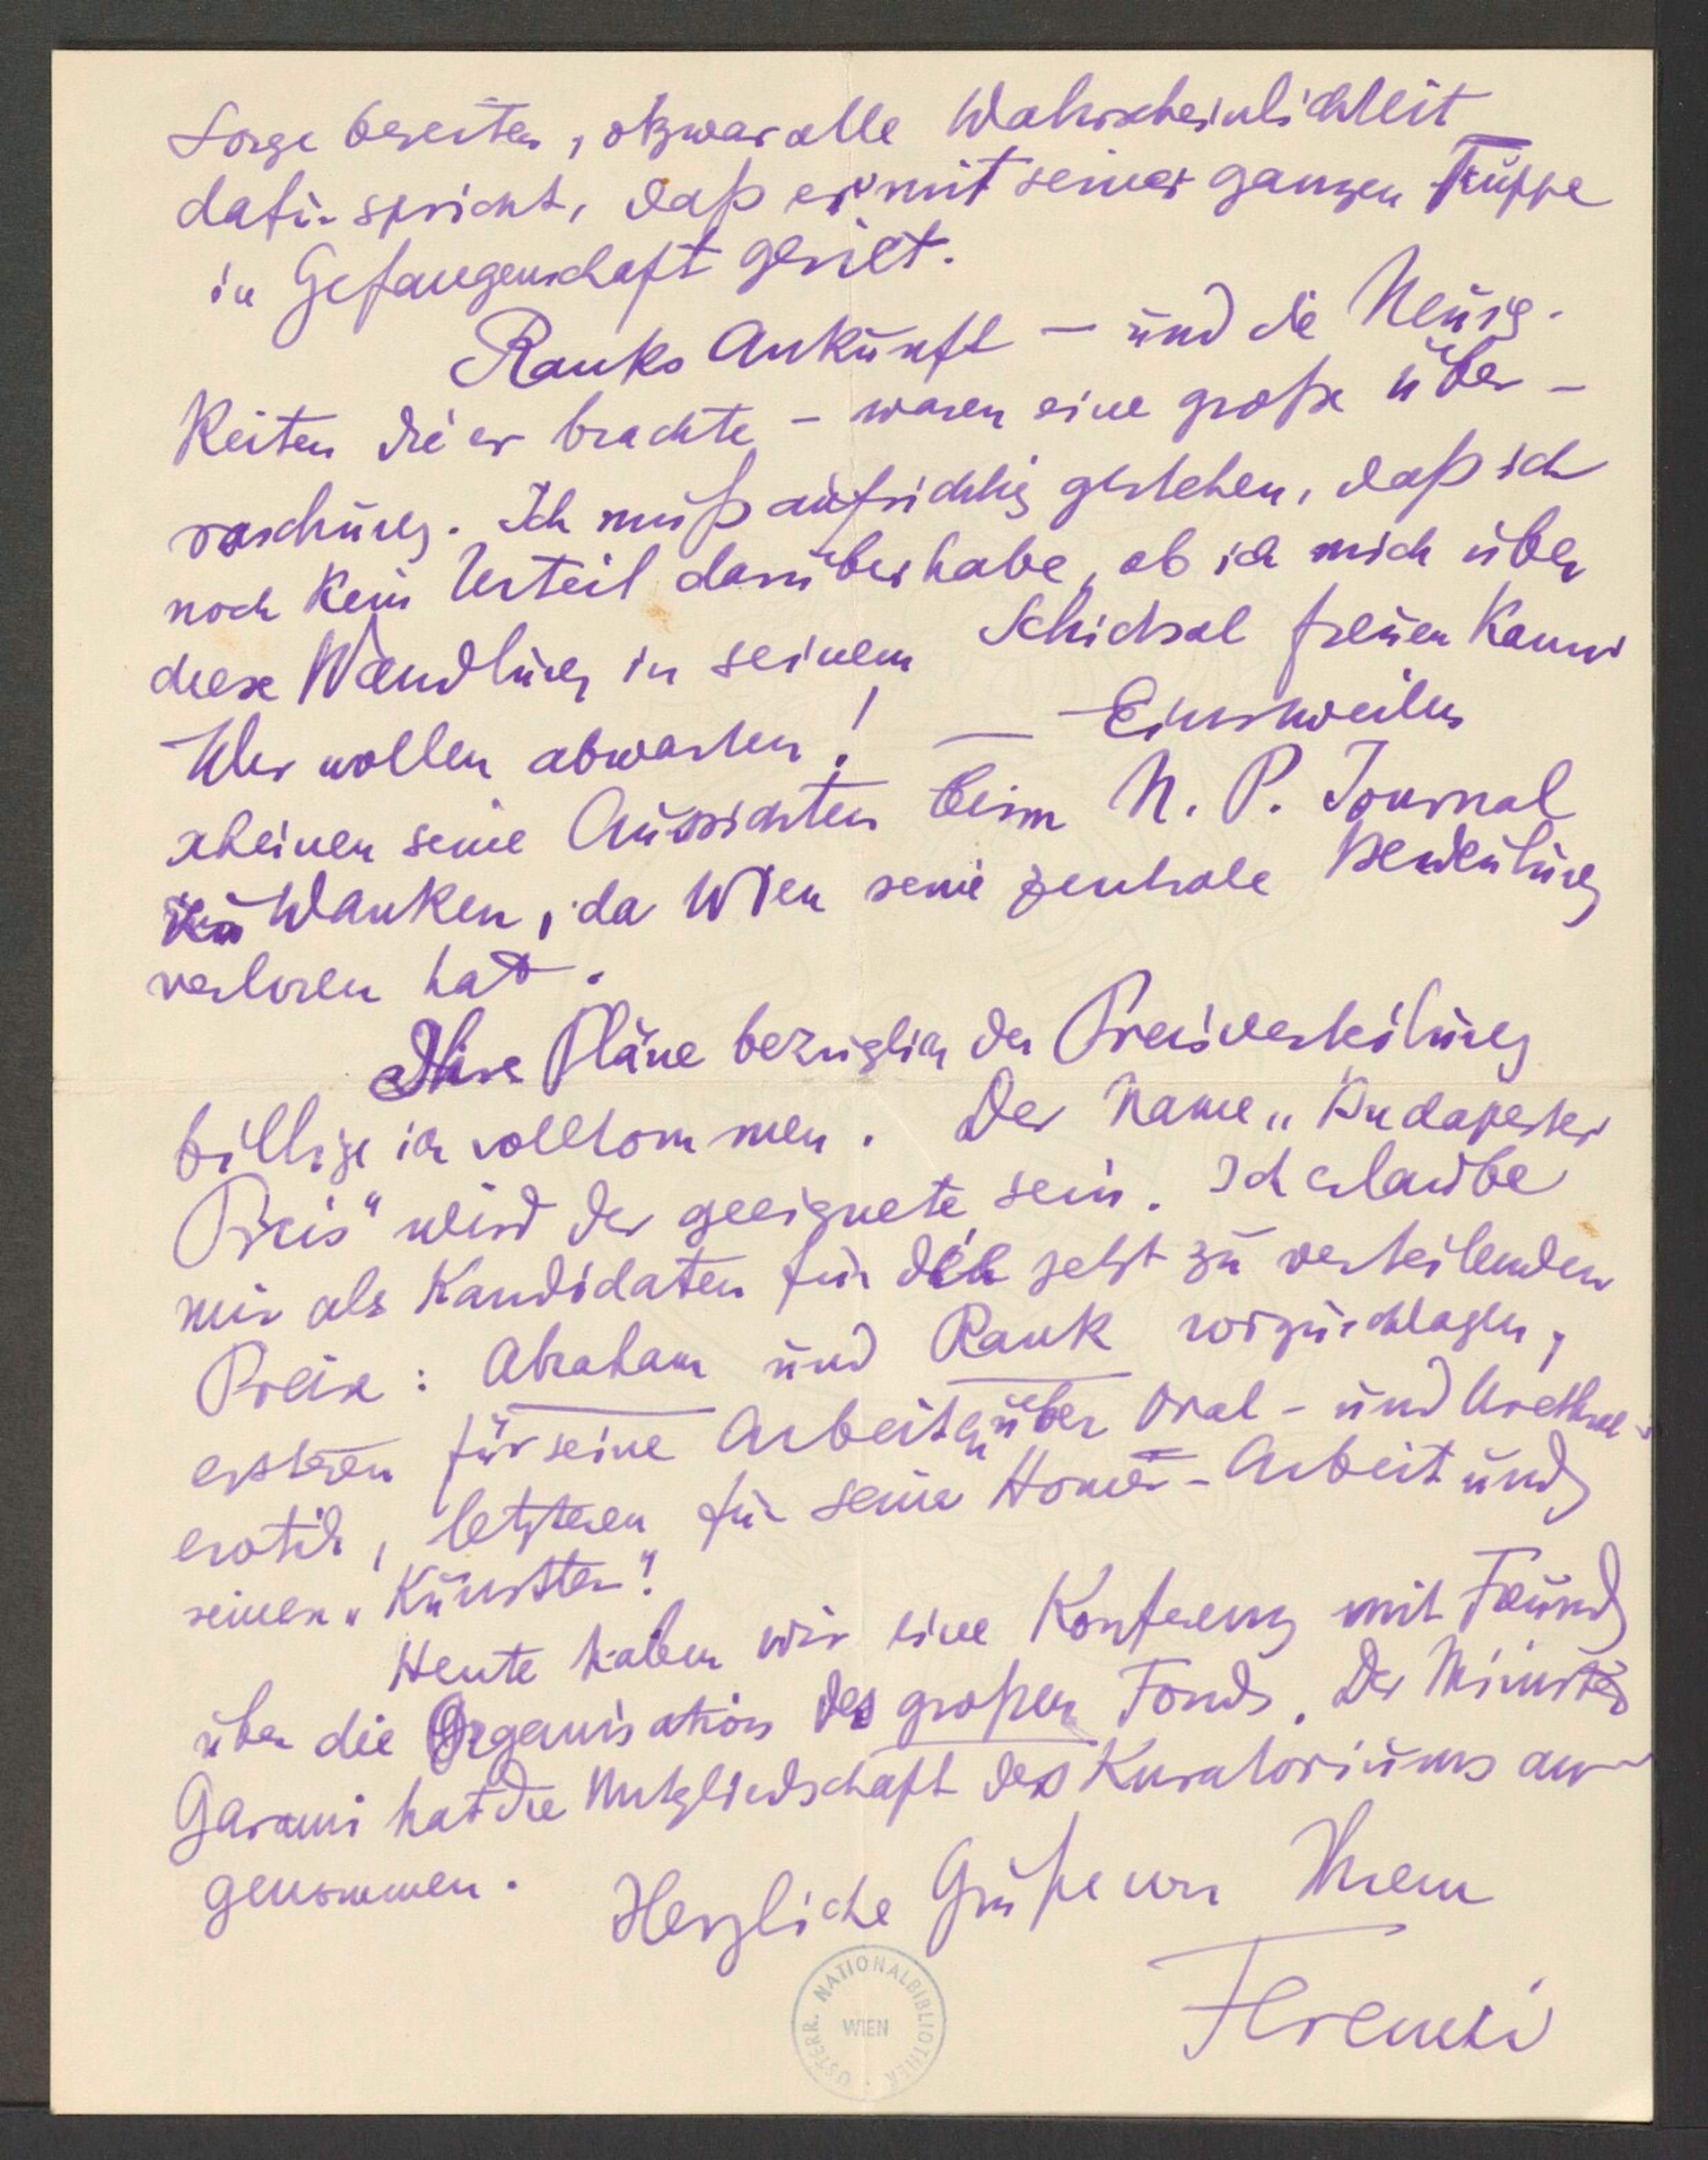 Sorge bereiten, obzwar alle Wahrscheinlichkeit
dafür spricht, daß er mit seiner ganzen Truppe
in Gefangenschaft geriet.
Ranks Ankunft – und die Neuig-
keiten die er brachte – waren eine große Über-
raschung. Ich muß aufrichtig gestehen, daß ich
noch kein Urteil darüber habe, ob ich mich über
diese Wandlung in seinem Schicksal freuen kann
Wir wollen abwarten! — Einstweilen
scheinen seine Aussichten beim N. P. Journal
zu wanken, da Wien seine zentrale Bedeutung
verloren hat.
Ihre Pläne bezüglich der Preisverteilung
billige ich vollkommen. Der Name „Budapester
Preis“ wird der geeignete sein. Ich erlaube
mir als Kandidaten für die jetzt zu verteilenden
Preise: Abraham und Rank vorzuschlagen,
ersteren für seine Arbeiten über Oral- und Urethral-
erotik, letzteren für seine Homer-Arbeit und
seinen „Künstler“.
Heute haben wir eine Konferenz mit Freund
über die Organisation des großen Fonds. Der Minister
Garami hat die Mitgliedschaft des Kuratoriums an-
genommen.
Herzliche Grüße von Ihrem
Ferenczi
ÖSTERR. NATIONALBIBLIOTHEK
WIEN